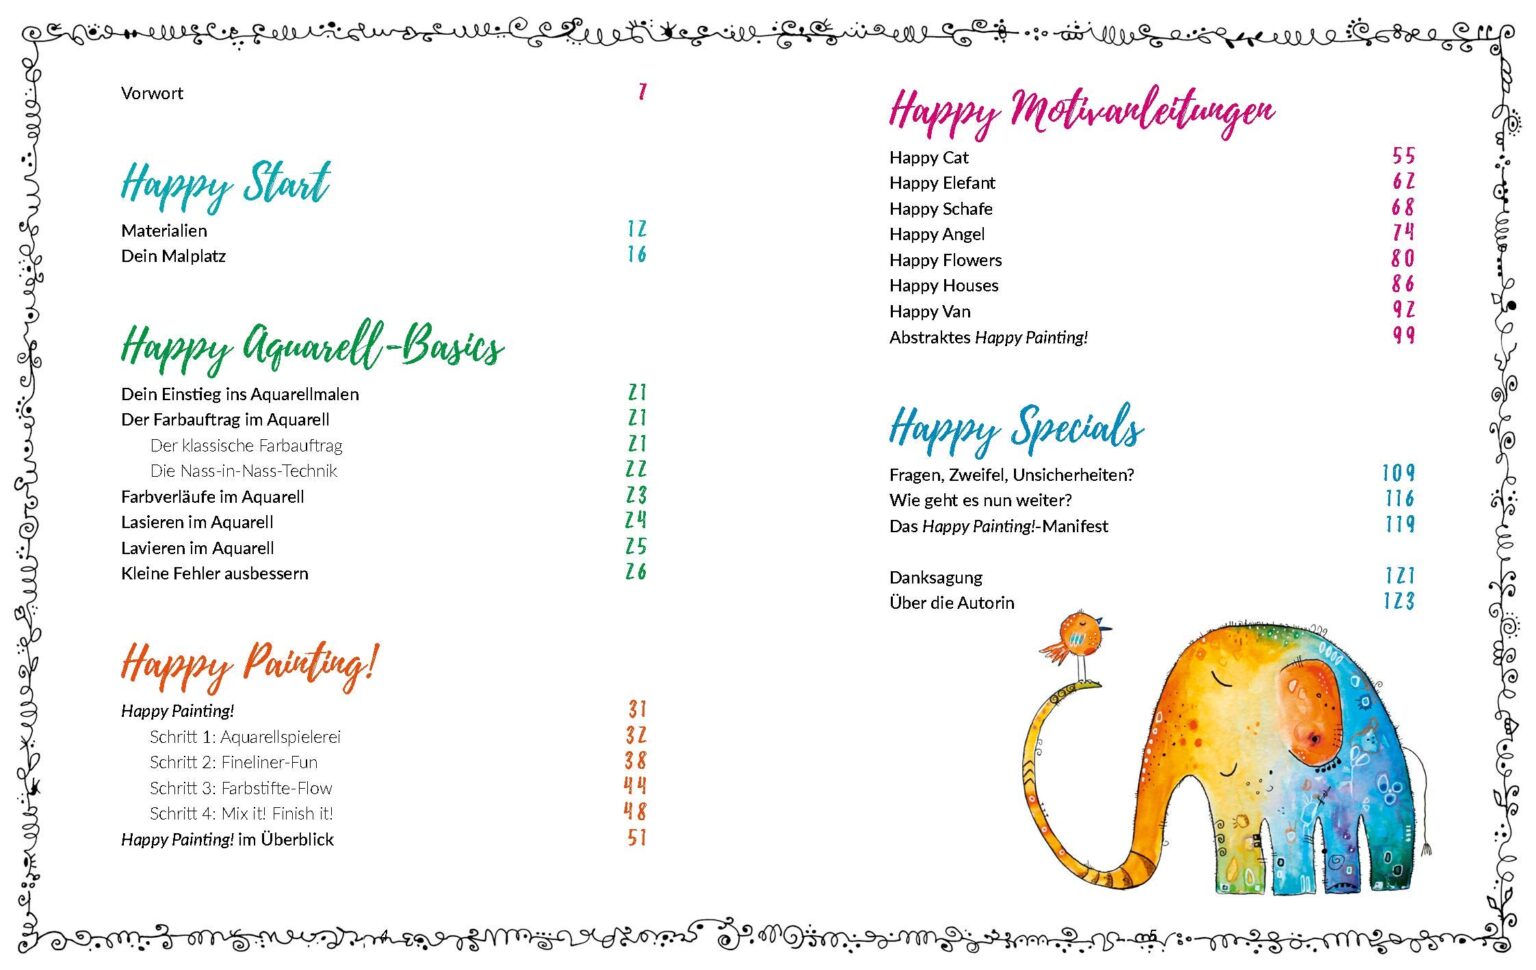 Vorwort 7
Happy Start
Materialien 12
Dein Malplatz 16
Happy Aquarell-Basics
Dein Einstieg ins Aquarellmalen 21
Der Farbauftrag im Aquarell 21
Der klassische Farbauftrag 21
Die Nass-in-Nass-Technik 22
Farbverläufe im Aquarell 23
Lasieren im Aquarell 24
Lavieren im Aquarell 25
Kleine Fehler ausbessern 26
Happy Painting!
Happy Painting! 31
Schritt 1: Aquarellspielerei 32
Schritt 2: Fineliner-Fun 38
Schritt 3: Farbstifte-Flow 44
Schritt 4: Mix it! Finish it! 48
Happy Painting! im Überblick 51
Happy Motivanleitungen
Happy Cat 55
Happy Elefant 62
Happy Schafe 68
Happy Angel 74
Happy Flowers 80
Happy Houses 86
Happy Van 92
Abstraktes Happy Painting! 99
Happy Specials
Fragen, Zweifel, Unsicherheiten? 109
Wie geht es nun weiter? 116
Das Happy Painting!-Manifest 119
Danksagung 121
Über die Autorin 123